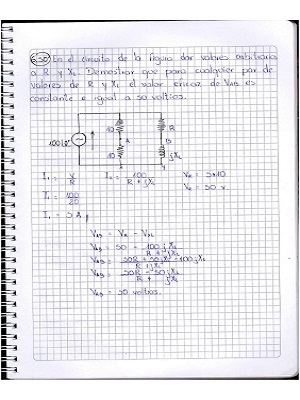 En el circuito de la figura dar valores arbitrarios
a R y XL. Demostrar que para cualquier par de
valores de R y XL el valor eficaz de VAB es
constante e igual a 50 voltios.
100∠0°
10
A
10
R
B
jXL
I1 = V/R I2 = 100/(R + jXL) VA = 5*10
I1 = 100/20 VA = 50 v.
I1 = 5 A
VAB = VA - VXL
VAB = 50 - 100jXL/(R + jXL)
VAB = (50R + 50jXL - 100jXL)/(R + jXL)
VAB = (50R - 50jXL)/(R + jXL)
VAB = 50 voltios.